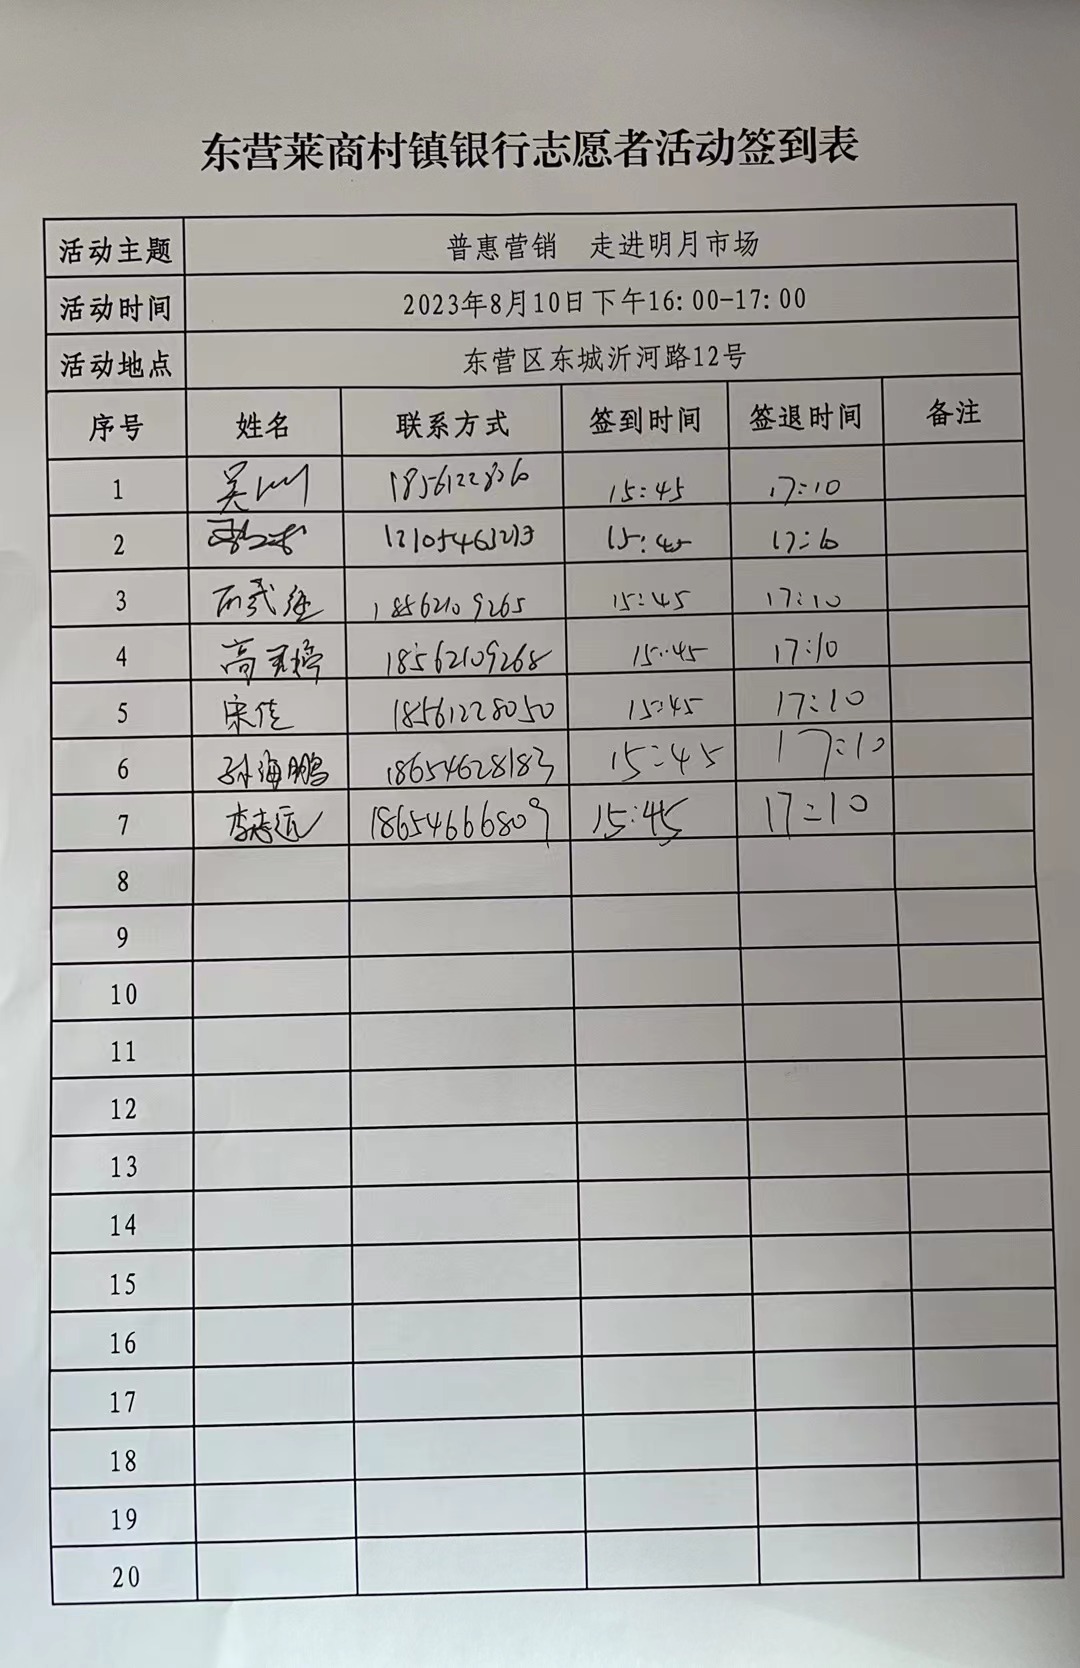 东营莱商村镇银行志愿者活动签到表
活动主题 普惠营销 走进明月市场
活动时间 2023年8月10日下午16:00-17:00
活动地点 东营区东城沂河路12号
序号 姓名 联系方式 签到时间 签退时间 备注
1 吴川 15:45 17:10
2 15:45
3 18562109265 15:45 17:10
4 高 18562109268 15:45 17:10
5 宋佳 18561228050 15:45 17:10
6 孙海鹏 18654628183 15:45 17:10
7 李志远 18654666809 15:45 17:10
8
9
10
11
12
13
14
15
16
17
18
19
20